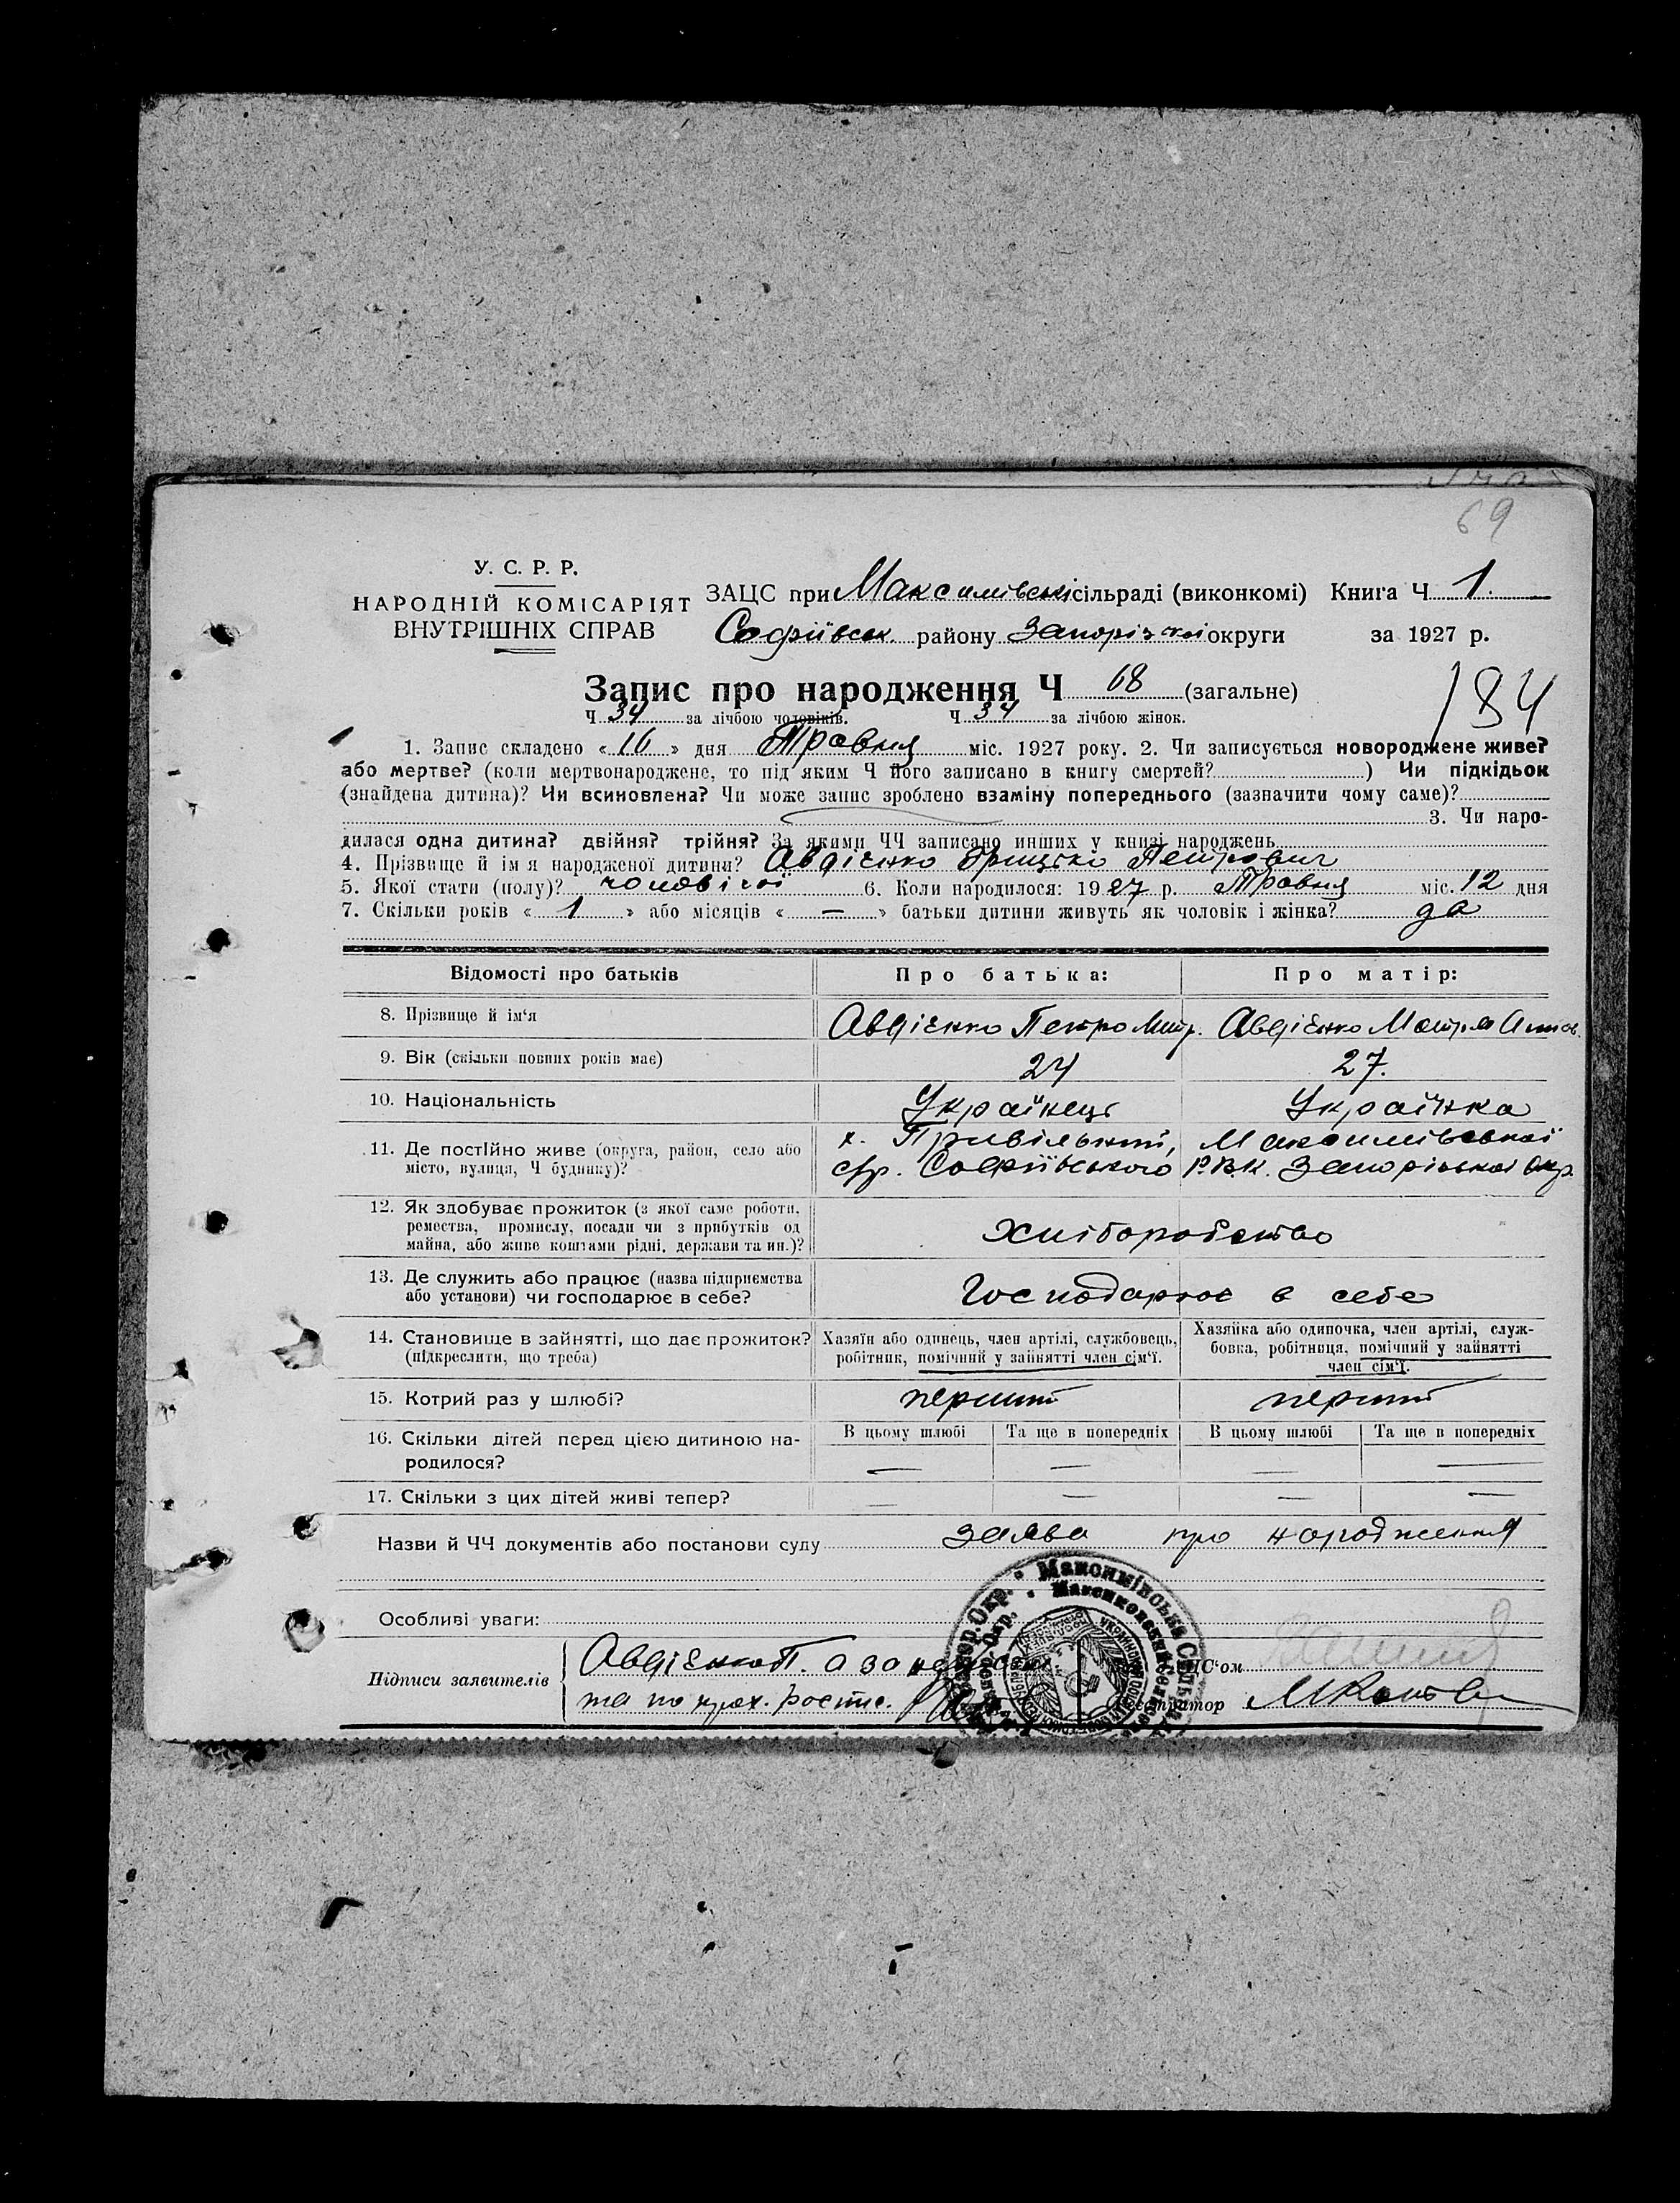 69
У. С. Р. Р.
НАРОДНІЙ КОМІСАРІЯТ
ВНУТРІШНІХ СПРАВ
ЗАЦС при Максимівській сільраді (виконкомі) Книга Ч 1.
Софіївськ. району Запорізької округи за 1927 р.
Запис про народження Ч 68 (загальне)
184
Ч 34 за лічбою чоловіків. Ч 34 за лічбою жінок.
1. Запис складено « 16 » дня Травня міс. 1927 року. 2. Чи записується новороджене живе?
або мертве? (коли мертвонароджене, то під яким Ч його записано в книгу смертей? ) Чи підкідьок
(знайдена дитина)? Чи всиновлена? Чи може запис зроблено взаміну попереднього (зазначити чому саме)?
3. Чи наро-
дилася одна дитина? двійня? трійня? За якими ЧЧ записано инших у книзі народжень
4. Прізвище й ім я народженої дитини? Авдієнко Грицько Петрович
5. Якої стати (полу)? чоловічої 6. Коли народилося: 1927 р. Травня міс. 12 дня
7. Скільки років « 1 » або місяців « — » батьки дитини живуть як чоловік і жінка? да
Відомості про батьків Про батька: Про матір:
8. Прізвище й ім'я Авдієнко Петро Митр. Авдієнко Мотря
9. Вік (скільки повних років має) 24 27.
10. Національність Українець Українка
11. Де постійно живе (округа, район, село або місто, вулиця, Ч будинку)? х. Привільний, Максимівської
с/р. Софіївського Р.В.К. Запорізької Окр.
12. Як здобуває прожиток (з якої саме роботи,
ремества, промислу, посади чи з прибутків од
майна, або живе коштами рідні, держави та ин.)? Хліборобство
13. Де служить або працює (назва підприємства
або установи) чи господарює в себе? Господарює в себе
14. Становище в зайнятті, що дає прожиток?
(підкреслити, що треба)
Хазяїн або одинець, член артілі, службовець,
робітник, помічний у зайнятті член сім'ї.
Хазяйка або одиночка, член артілі, служ-
бовка, робітниця, помічний у зайнятті
член сім'ї.
15. Котрий раз у шлюбі? перший перший
16. Скільки дітей перед цією дитиною на-
родилося?
В цьому шлюбі Та ще в попередніх В цьому шлюбі Та ще в попередніх
— — — —
17. Скільки з цих дітей живі тепер? — — — —
Назви й ЧЧ документів або постанови суду заява про народження
Особливі уваги:
Підписи заявителів Авдієнко П. а за
та по прох. розпис.
Максимівська